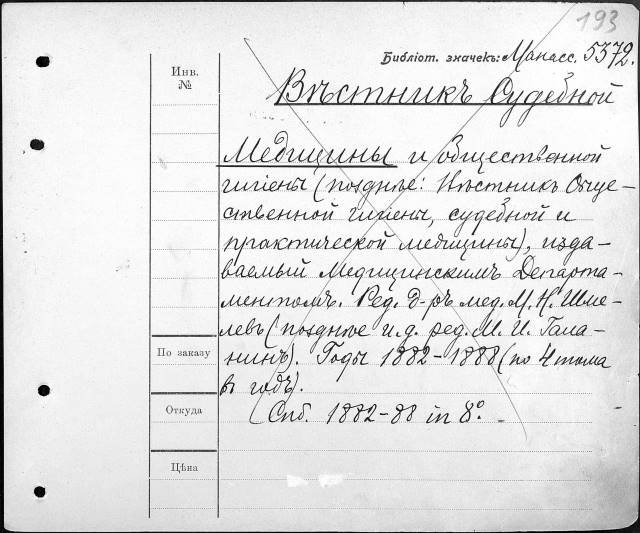 193
Библіот. значекъ: Манасс. 5372.
Инв. №
Вѣстникъ Судебной
Медицины и общественной
гигіены (позднѣе: Вѣстникъ Обще-
ственной гигіены, судебной и
практической медицины), изда-
ваемый Медицинскимъ Департа-
ментомъ. Ред. д-ръ мед. М. Н. Шме-
левъ (позднѣе и.д. ред. М. И. Гала-
нинъ). Годы 1882-1888 (по 4 тома
въ годъ).
(Спб. 1882-88 in 8°. -
По заказу
Откуда
Цѣна